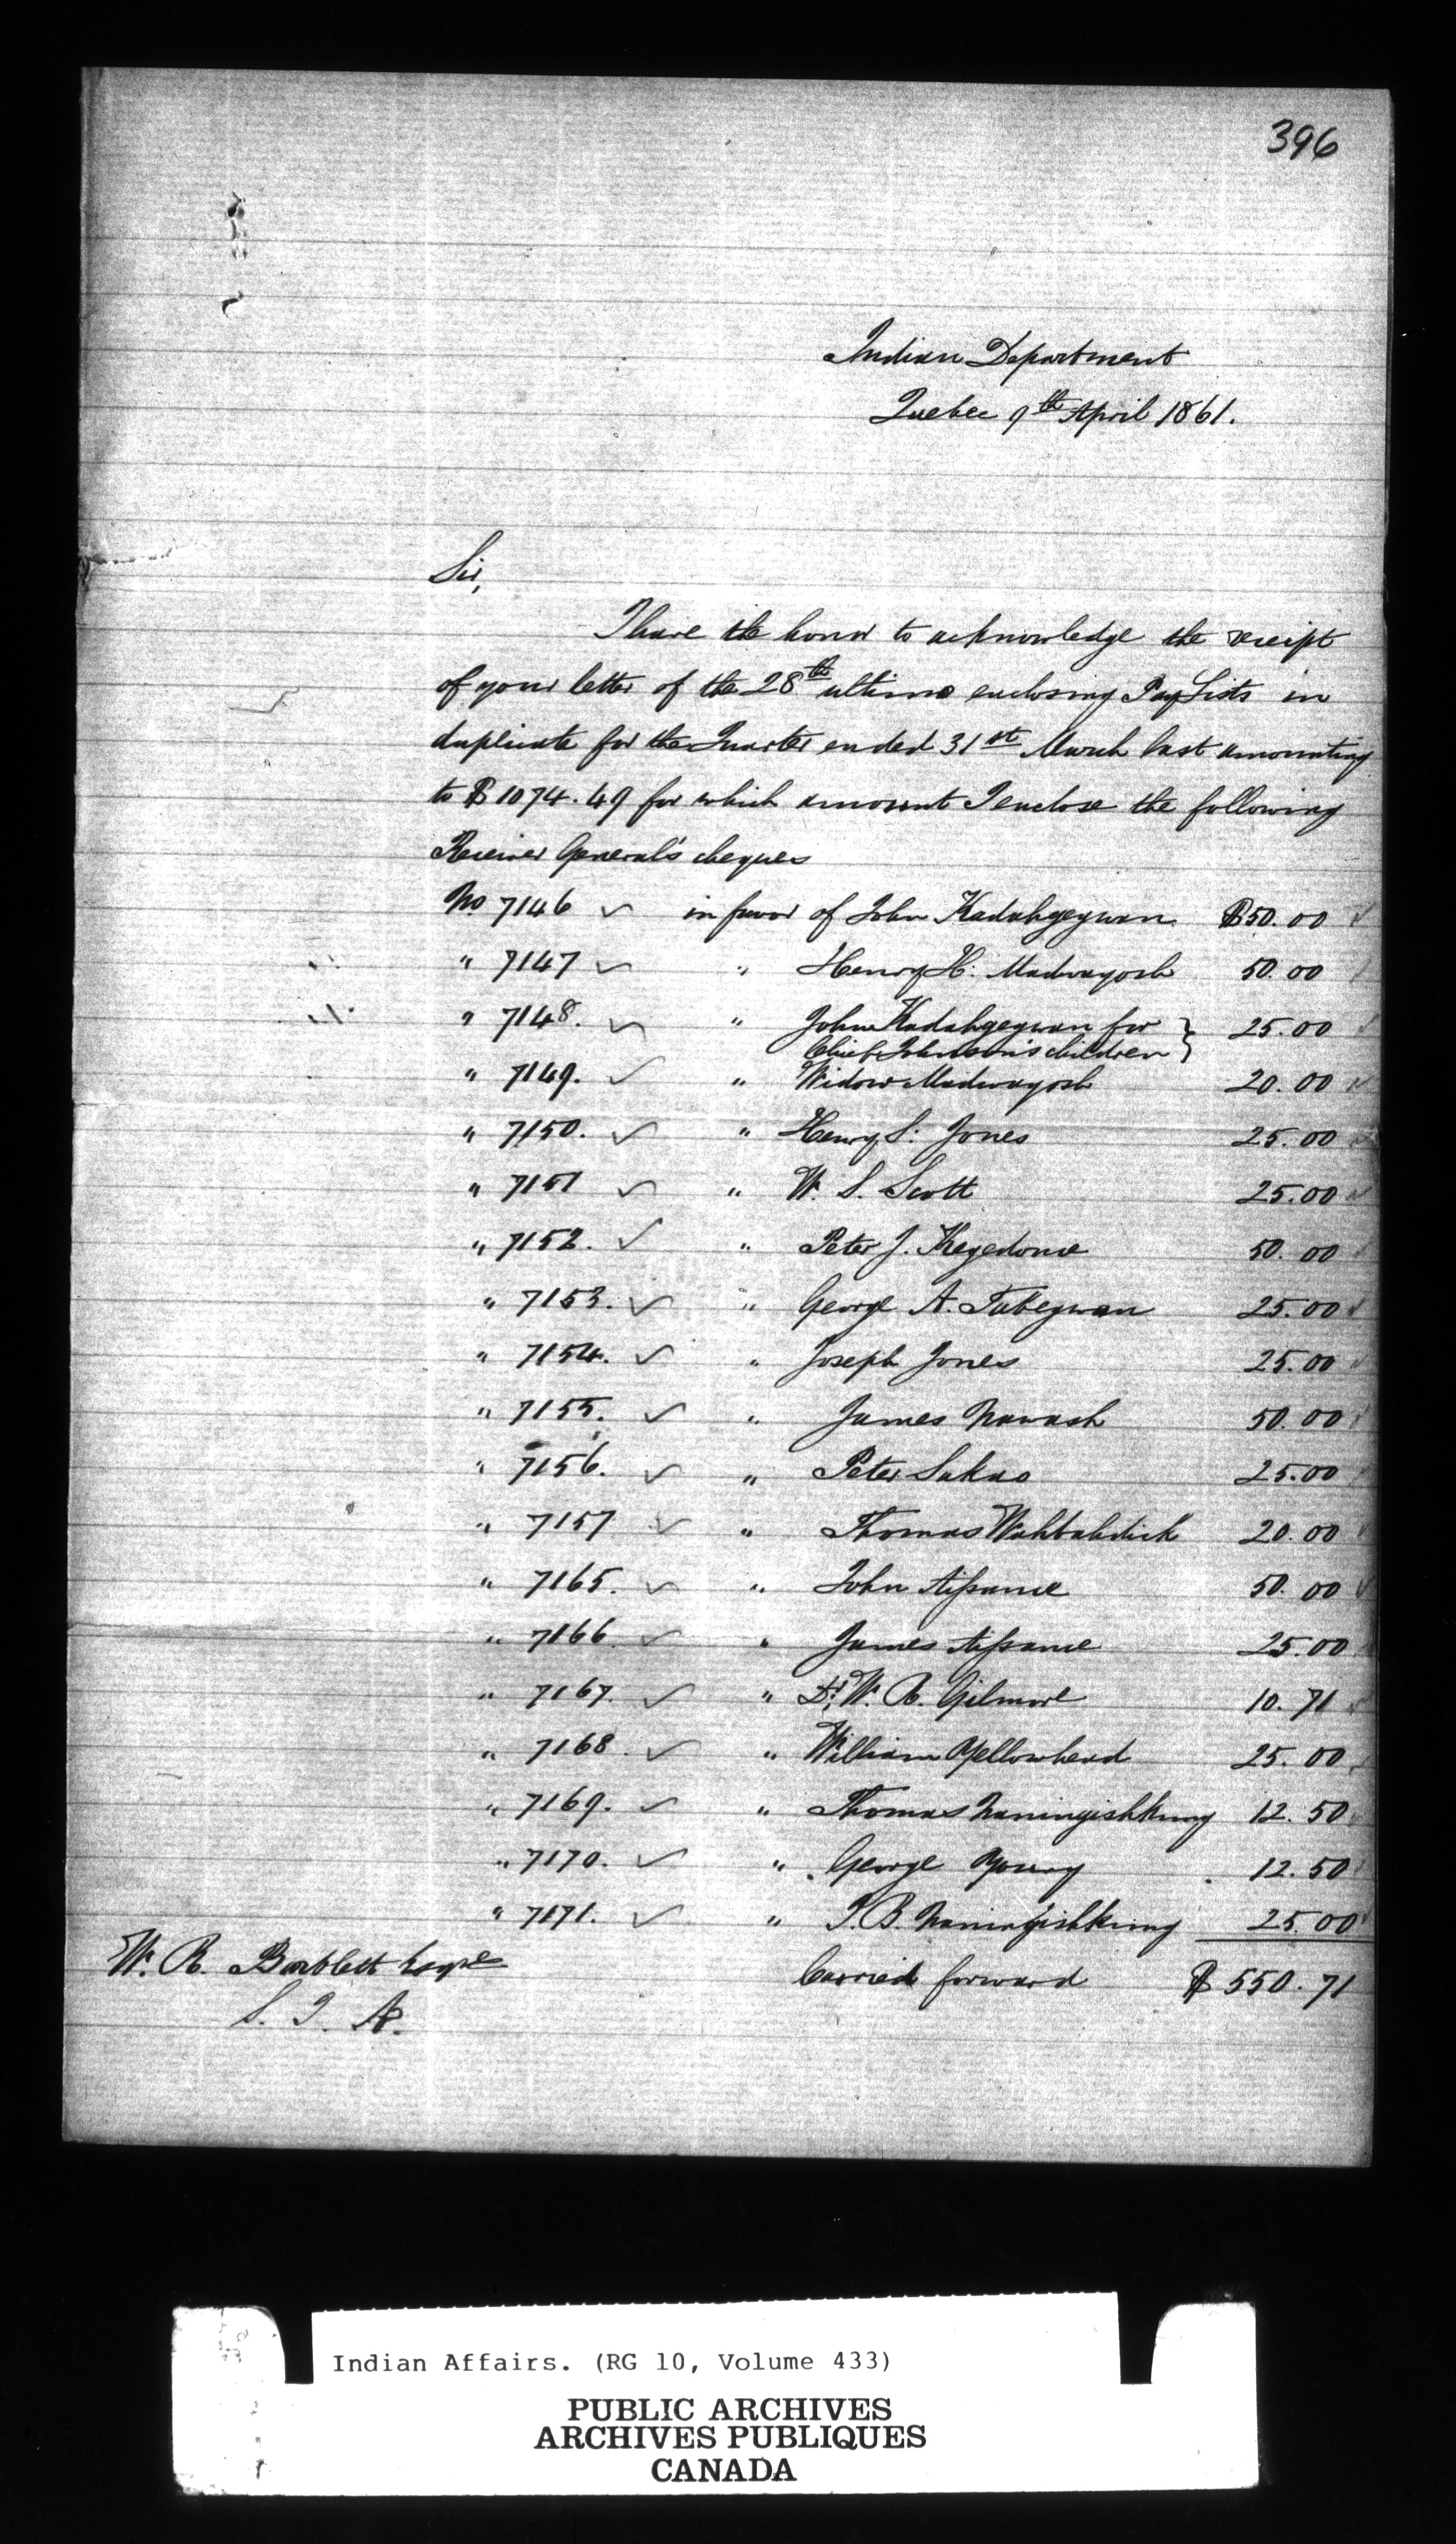 396
Indian Department
Quebec 9th April 1861.
Sir,
I have the honor to acknowledge the receipt
of your letter of the 28th ultimo enclosing Pay Lists in
duplicate for the Quarter ended 31st March last amounting
to $1074.49 for which amount I enclose the following
Receiver General's cheques
No 7146 ✓ in favor of John Kadahgegwan $50.00 ✓
" 7147 ✓ " Henry H. Madwayosh 50.00
" 7148. ✓ " John Kadahgegwan for } 25.00
Chief Johnson's children }
" 7149. ✓ " Widow Madwayosh 20.00
" 7150. ✓ " Henry S. Jones 25.00
" 7151 ✓ " W. S. Scott 25.00
" 7152. ✓ " Peter J. Kegedonce 50.00
" 7153. ✓ " George A. Tabegwan 25.00
" 7154. ✓ " Joseph Jones 25.00
" 7155. ✓ " James Nawash 50.00
" 7156. ✓ " Peter Sakao 25.00
" 7157 ✓ " Thomas Wahbahdick 20.00
" 7165. ✓ " John Aissance 50.00
" 7166. ✓ " James Aissance 25.00
" 7167. ✓ " Dr. W. R. Gilmore 10.71
" 7168. ✓ " William Yellowhead 25.00
" 7169. ✓ " Thomas Naningishkung 12.50
" 7170. ✓ " George Young 12.50
" 7171. ✓ " J. B. Naningishkung 25.00
Carried forward $550.71
W. R. Bartlett Esqre
S. I. A.
Indian Affairs. (RG 10, Volume 433)
PUBLIC ARCHIVES
ARCHIVES PUBLIQUES
CANADA